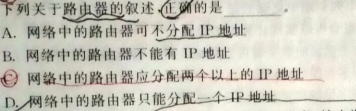 下列关于路由器的叙述,正确的是
A. 网络中的路由器可不分配 IP 地址
B. 网络中的路由器不能有 IP 地址
C 网络中的路由器应分配两个以上的 IP 地址
D. 网络中的路由器只能分配一个 IP 地址